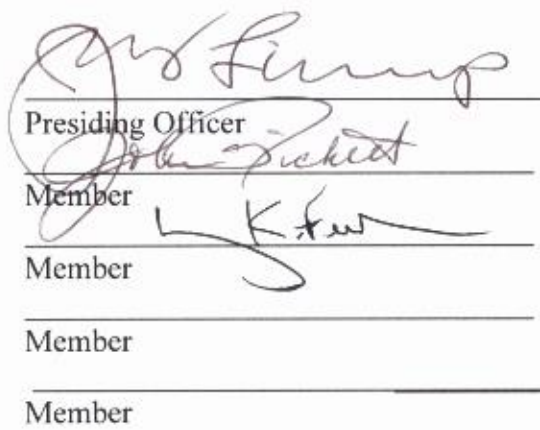 Presiding Officer
John Pickett
Member
Member
Member
Member